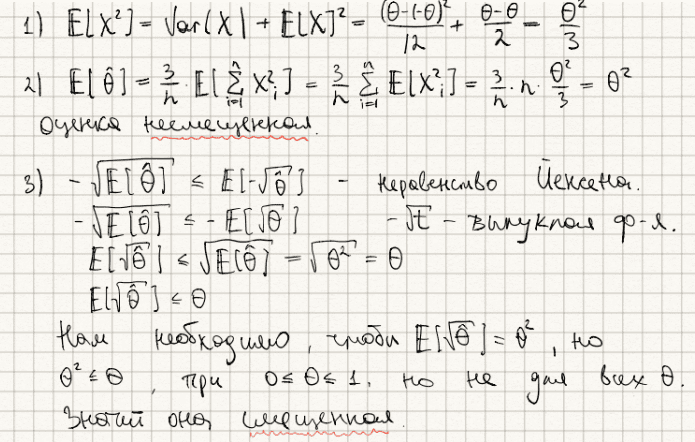 1) E[X²] = Var(X) + E[X]² = (θ-(-θ)²)/12 + (θ-θ)/2 = θ²/3
2) E[θ̂] = 3/n · E[∑ⁿᵢ₌₁ Xᵢ²] = 3/n ∑ⁿᵢ₌₁ E[Xᵢ²] = 3/n · n · θ²/3 = θ²
оценка несмещенная.
3) -√E[θ̂] ≤ E[-√θ̂] - неравенство Йенсена.
-√E[θ̂] ≤ -E[√θ̂] -√t - выпуклая ф-я.
E[√θ̂] ≤ √E[θ̂] = √θ² = θ
E[√θ̂] ≤ θ
Нам необходимо, чтобы E[√θ̂] = θ², но
θ² ≤ θ, при 0 ≤ θ ≤ 1, но не для всех θ.
Значит она смещенная.